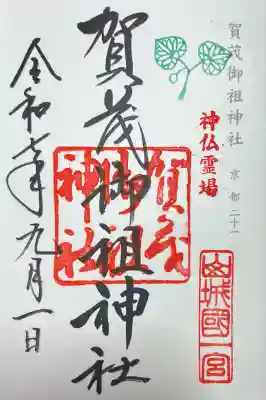 賀茂御祖神社 京都二十一
神仏霊場
山城國一宮
賀茂御祖神社
賀茂
御祖
神社
令和七年九月一日